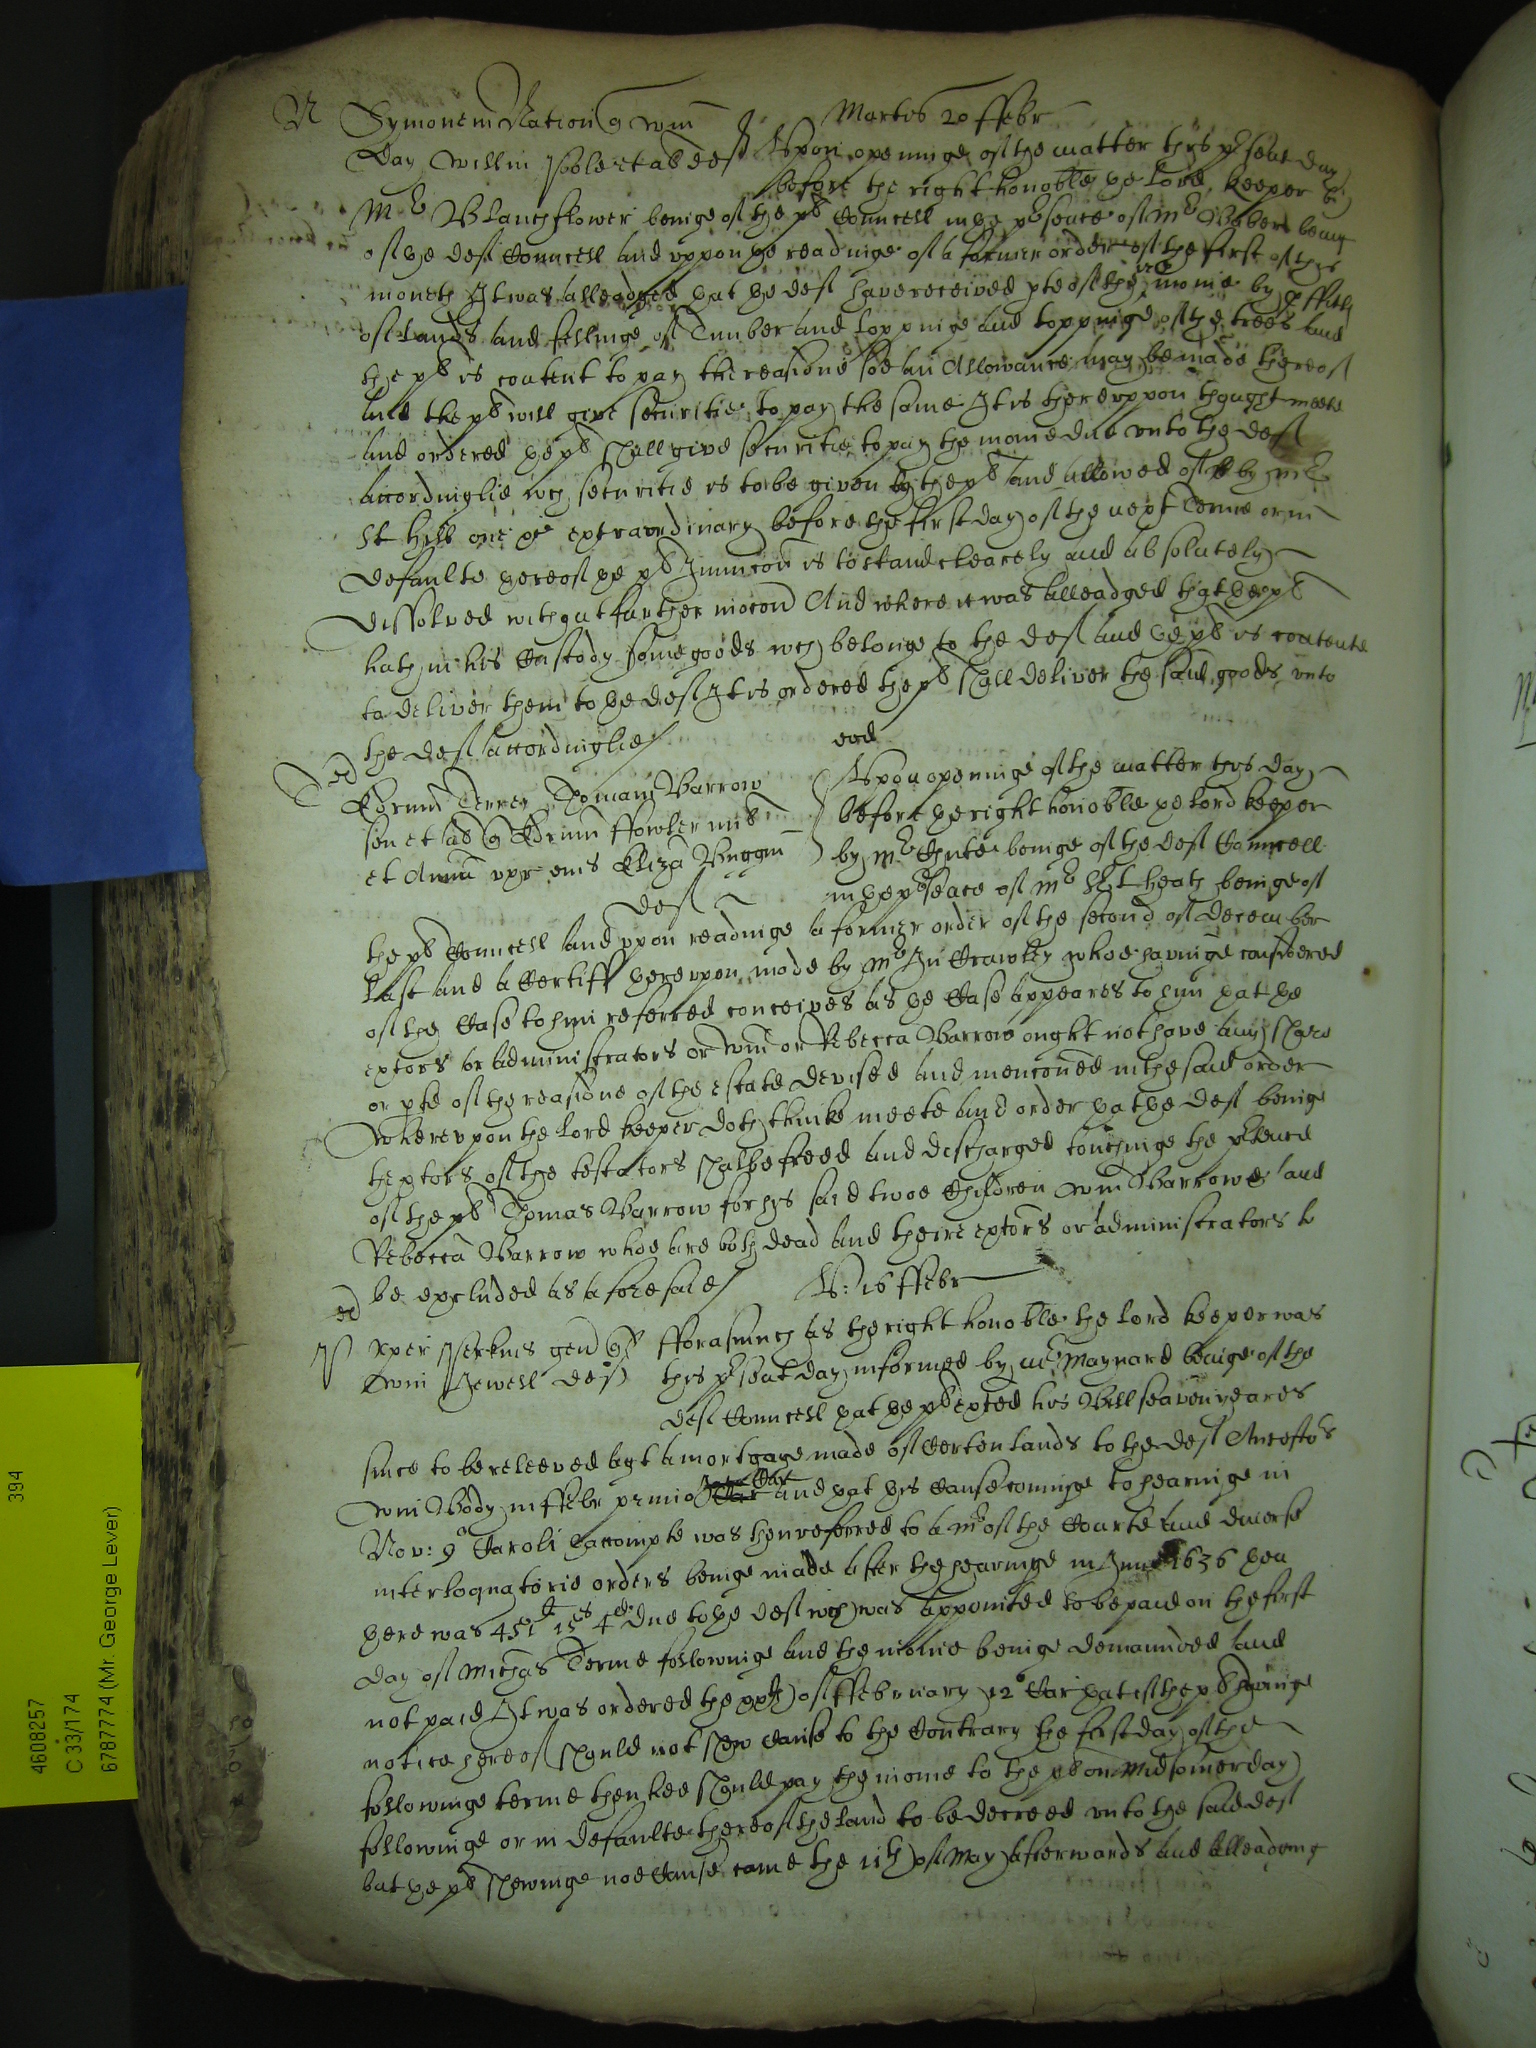 N Symonem Nation q Wm Martis 20 ffebr
Day Willm Poole et al def Upon openinge of the matter this pr~sent day
before the right honoble ye Lord keeper by
Mr Blanchflower beinge of the pl Councell in ye pr~sence of Mr beinge
of ye def Councell and uppon ye readinge of a former order of the first of this
moneth It was alleadged yat ye def have received pte of the monie by
of lands and fellinge of Timber and loppinge and toppinge of the trees and
the pl is content to pay the residue soe an Allowance may be made thereof
and the pl will give securitie to pay the same It is thereuppon thought meete
and ordered ye pl shall give securitie to pay the monie due unto the def
accordinglie wch securitie is to be given by the pl and allowed of by Mr
before the first day of the next Terme or in
defaulte yereof ye pl Iniuncon is to stand clearely and absolutely
dissolved without further mocon And where it was alleadged that ye pl
hath in his Custody some goods wch belonge to the def and ye pl is contente
to deliver them to ye def It is ordered the pl shall deliver the said goods unto
the def accordinglie
eod
Edmund Terrey Thomam Barrow Upon openinge of the matter this day
sen et al q Edmund ffowler mil before ye right honoble ye Lord keeper
et Annam uxor eius Eliza Buggin by Mr Chute beinge of the def Councell
def in ye pr~sence of Mr Heath beinge of
the pl Councell and uppon readinge a former order of the second of December
last and a Certiff yereuppon made by Mr Jn Crawley whoe havinge considered
of the Case to him referred conceives as ye Case appeares to him yat ye
exrtors or administrators of Wm or Rebecca Barrow ought not have any share
or pte of the residue of the estate devised and menconed in the said order
Whereuppon the Lord keeper doth thinke meete and order yat ye def beinge
the exrtors of the testators shalbe freed and discharged touchinge the pr~tence
of the pl Thomas Barrow for his said twoe Children Wm Barrowe and
Rebecca Barrow whoe are both dead and theire exrtors or administrators to
be excluded as aforesaid V: 16 ffebr
P Xpofer Perkins gen q fforasmuch as the right honoble the Lord keeper was
Wm Jewell def this pr~sent day informed by Mr Maynard beinge of the
def Councell yat ye pl exted his Bill seaven yeares
since to be releeved agt a mortgage made of Certen lands to the def Ancestor
Wm Body in ffebr primo Car and yat his Cause cominge to hearinge in
Nov: 9 Caroli accompte was then referred to a Mr of the Courte and diverse
interloquatorie orders beinge made after the hearinge in June 1636 yen
yere was 451l 15s 4d due to ye def wch was appointed to be paid on the first
day of Michas Terme followinge and the monie beinge demaunded and
not paid It was ordered the of ffebruary 12o Car yat if the pl havinge
notice thereof should not shew Cause to the Contrary the first day of the
followinge terme then hee should pay the monie to the pl on Midsomer day
followinge or in defaulte thereof the land to be decreed unto the said def
but ye pl shewinge noe Cause came the 11th of May afterwards and alleadging
394
4608257
C 33/174
6787774 (Mr. George Lever)